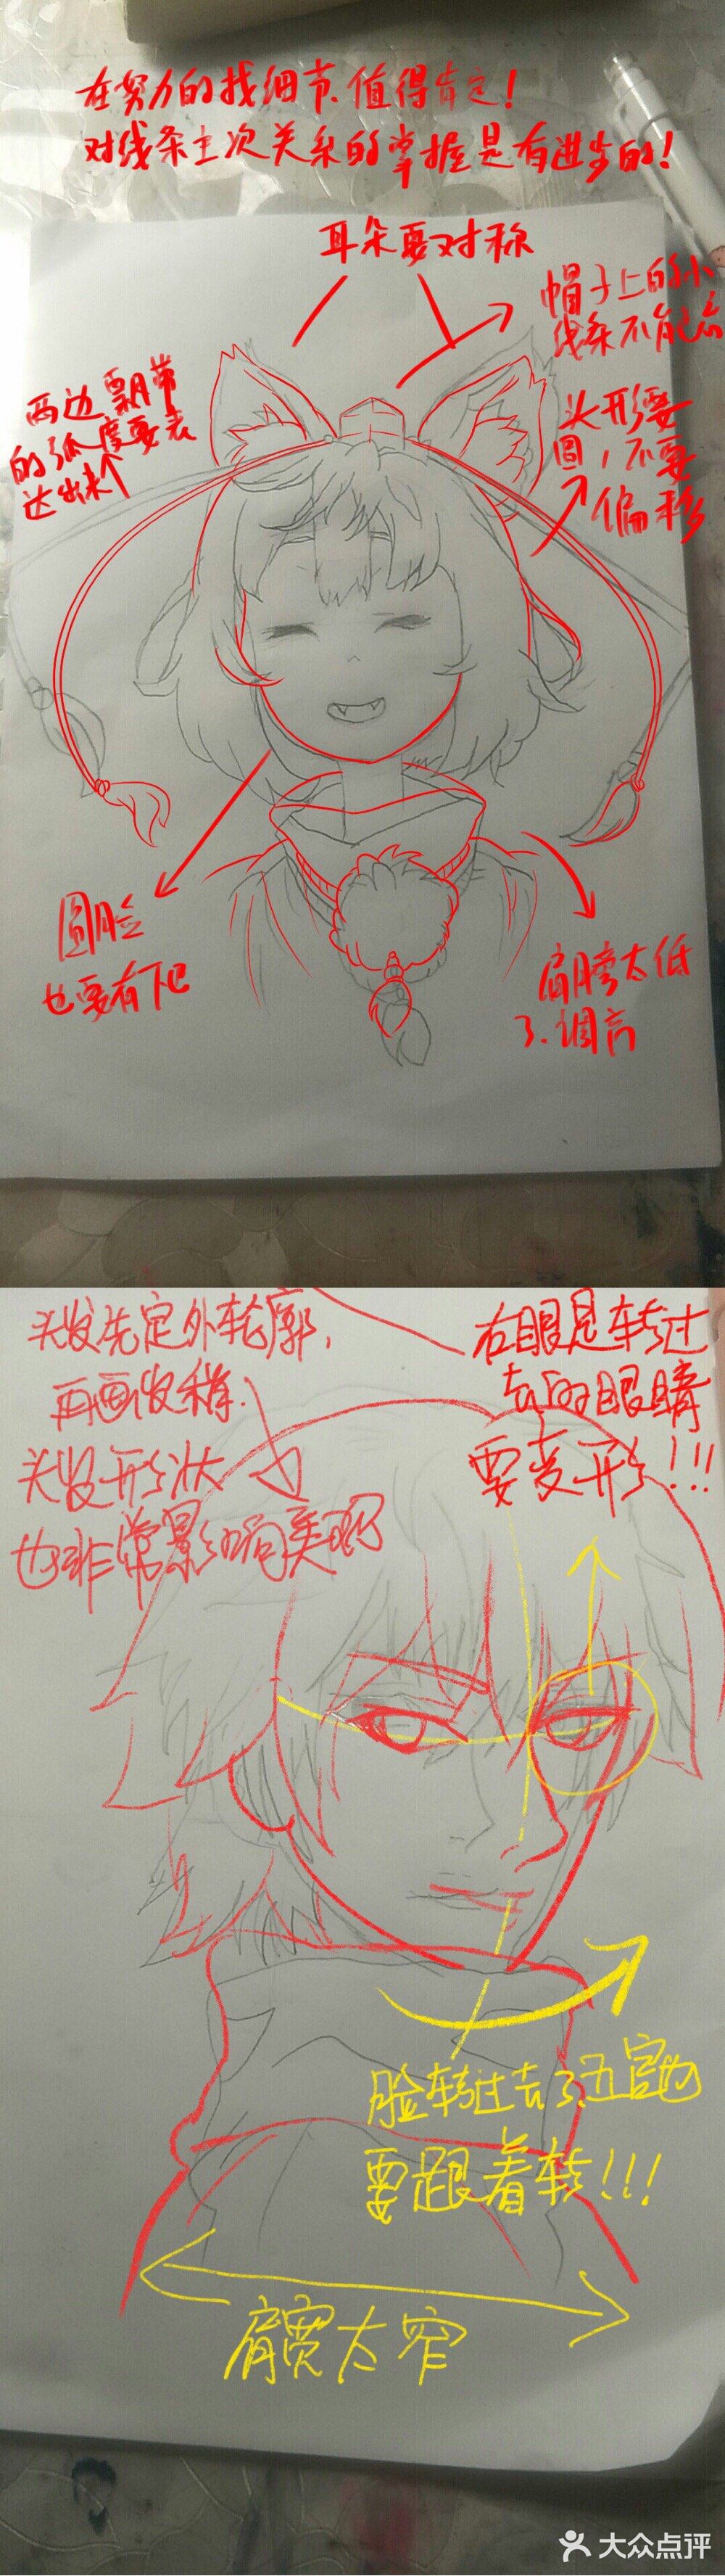 在努力的找细节、值得肯定！
对线条主次关系的掌握是有进步的！
耳朵要对称
帽子上的小
线条不能忘
两边飘带
的弧度要表
达出来
头形要
圆，不要
偏移
圆脸
也要有下巴
肩膀太低
了、调高
头发先定外轮廓，
再画发稍.
头发形状
也非常影响美观
右眼是转过
去的眼睛
要变形!!!
脸转过去了、五官也
要跟着转!!!
肩宽太窄
大众点评